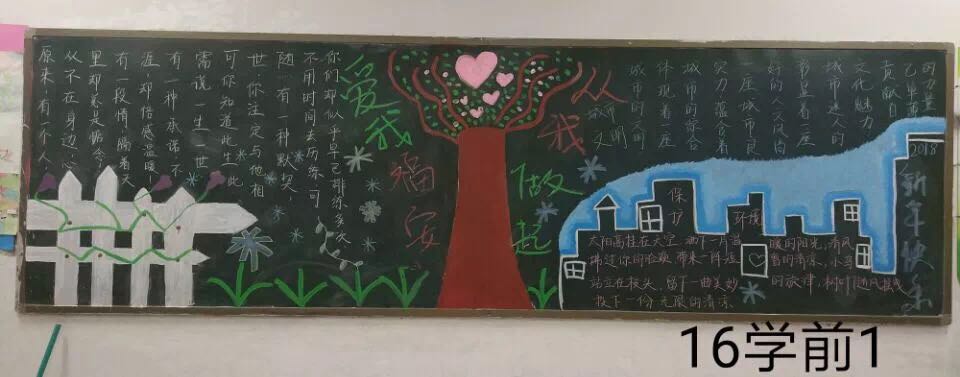 原来有一个人，
从不在身边，心
里却总是盼念，
有一段情，隔着天
涯，却倍感温暖，
有一种承诺，不
需说一生一世，
可你知道此生此
世，你注定与他相
随，有一种默契，
不用时间去历练，可
你们却似乎早已排练多次
爱我福安
从我做起
城市的文明
体现着一座
城市的综合
实力，蕴含着
一座城市良
好的人文风尚
彰显着一座
城市迷人的
文化魅力
贡献自
己单薄
的力量
保护环境
太阳高挂在天空，洒下一片温暖的阳光，清风
拂过你的脸颊，带来一阵的清凉，小鸟
站立在枝头，留下一曲美妙的旋律，树叶随风摇曳
投下一份无限的清凉。
2018
新年快乐
16学前1